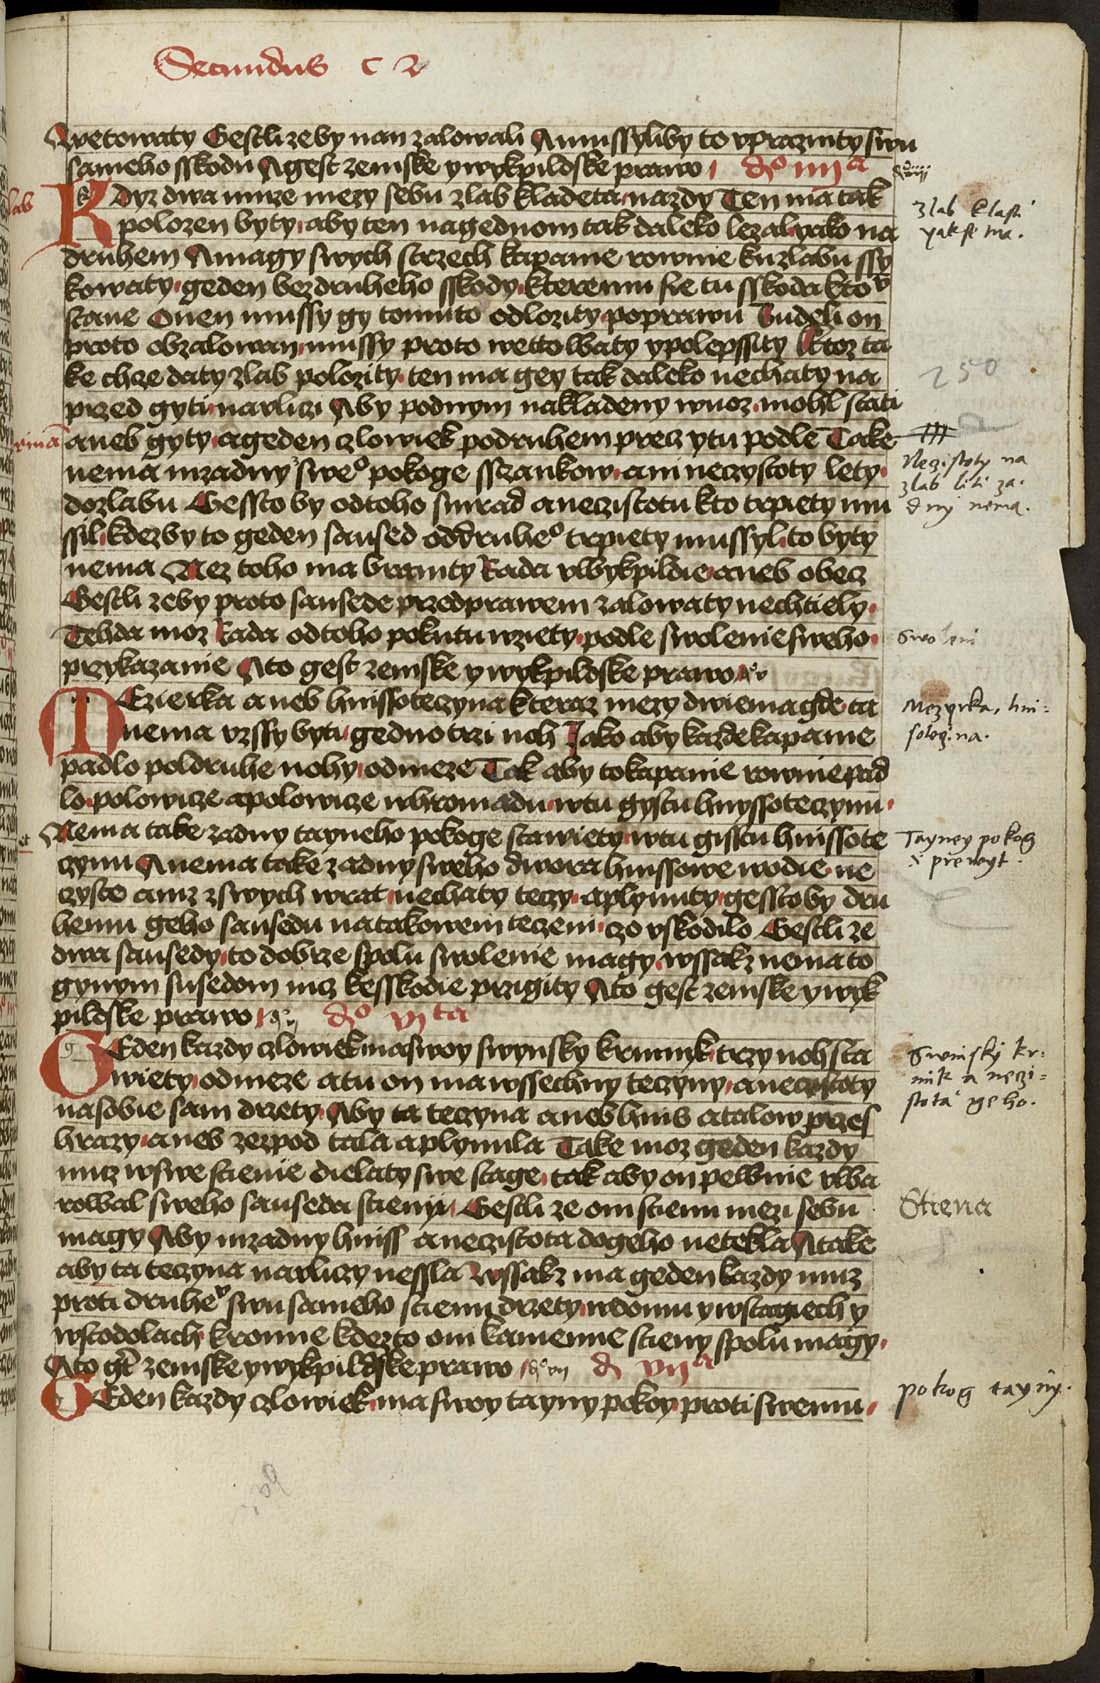 Secundus c 2
Awetowaty Gestli zeby nan zalowali A mussyliby to vpraznity swu
sameho sskodu A gest zemske y wykpildske prawo do iiii ta
KDyz dwa muze mezy sebu zlab kladeta nazdy Ten ma tak
polozen byty aby ten na gednom tak daleko lezal yako na
druhem A magy swych strzech kapanie rownie k zlabu ssy
kowaty geden bez druheho sskody kteremu sie tu sskoda kto
stane Onen mussy gy tomuto odlozity po prawu Budeli on
proto obzalowan mussy proto wettowaty y polepssity Ktoz ta
ke chze daty zlab polozity ten ma gey tak daleko nechaty na
przed gyti na vliczi Aby pod nym nakladeny wuoz mohl stati
aneb gyty a geden czlowiek po druhem precz y tu podle Take
nema nizadny sweo pokoge sszankow ani neczystoty lety
do zlabu Gessto by od toho smrad a necziscotu kto trpiety mu
ssil kdezby to geden saused od druheo trpiety mussyl to byty
nema Nez toho ma branity Rada v wykpildie aneb obecz
Gestli zeby proto sausede przed prawem zalowaty nechtiely
Tehda moz Rada od toho pokutu wziety podle swolenie sweho
przykazanie A to gest zemske y wykpildske prawo
MEzierka aneb hnissoteczyna kteraz mezy dwiema gde ta
nema vzssy byty gedno trzi noh Jako aby kazde kapanie
padlo pol druhe nohy od meze Tak aby to kapanie rownie pad
lo polowicze a polowicze w hromadu w tu gystu hnyssoteczynu
Nema take zadny tayneho pokoge stawiety w tu gistu hnissote
czynu A nema take zadny sweho dwora hnissowe wodie ne
czyste aniz z swych wrat nechaty teczy a plynuty gessto by dru
hemu geho sausedu na takowem teczeni czo vskodilo Gestli ze
dwa sausedy to dobrze spolu swolenie magy wssakz nema to
gynym susedom nicz kesskodie przigity A to gest zemske y wyk
pildske prawo do vi ta
GEden kazdy czlowiek ma swoy swynsky krmnyk trzy noh sta
wiety od meze a tu on ma wssechny teczyny a neczistoty
na sobie sam drzety Aby ta teczyna aneb hnis a talow przes
hrazy aneb zezpod tala a plynula Take moz geden kazdy
muz w swe stienie dielaty swe stage tak aby on pewnie v wa
rowal sweho sauseda stieny Gestli ze oni stienu mezi sebu
magy Aby nizadny hniss a necziscota do geho netekla A take
aby ta teczyna na vliczy nessla Wssakz ma geden kazdy muz
proti druheo swu sameho stienu drzety w domu y w staniech y
w stodolach kromie kdezto oni kamenne stieny spolu magy
A to gest zemske y wykpildske prawo d vii a
GEden kazdy czlowiek ma swoy tayny pokoy proti swemu
zlab klasti
yak se ma.
250
Neczistoty na
zlab liti za.
dny nema.
swoleni
Mezyrka, hni=
sotoczina.
Tayney pokog
Swinsky kr=
mik a neczi=
stota geho.
Stiena
pokog tayny.